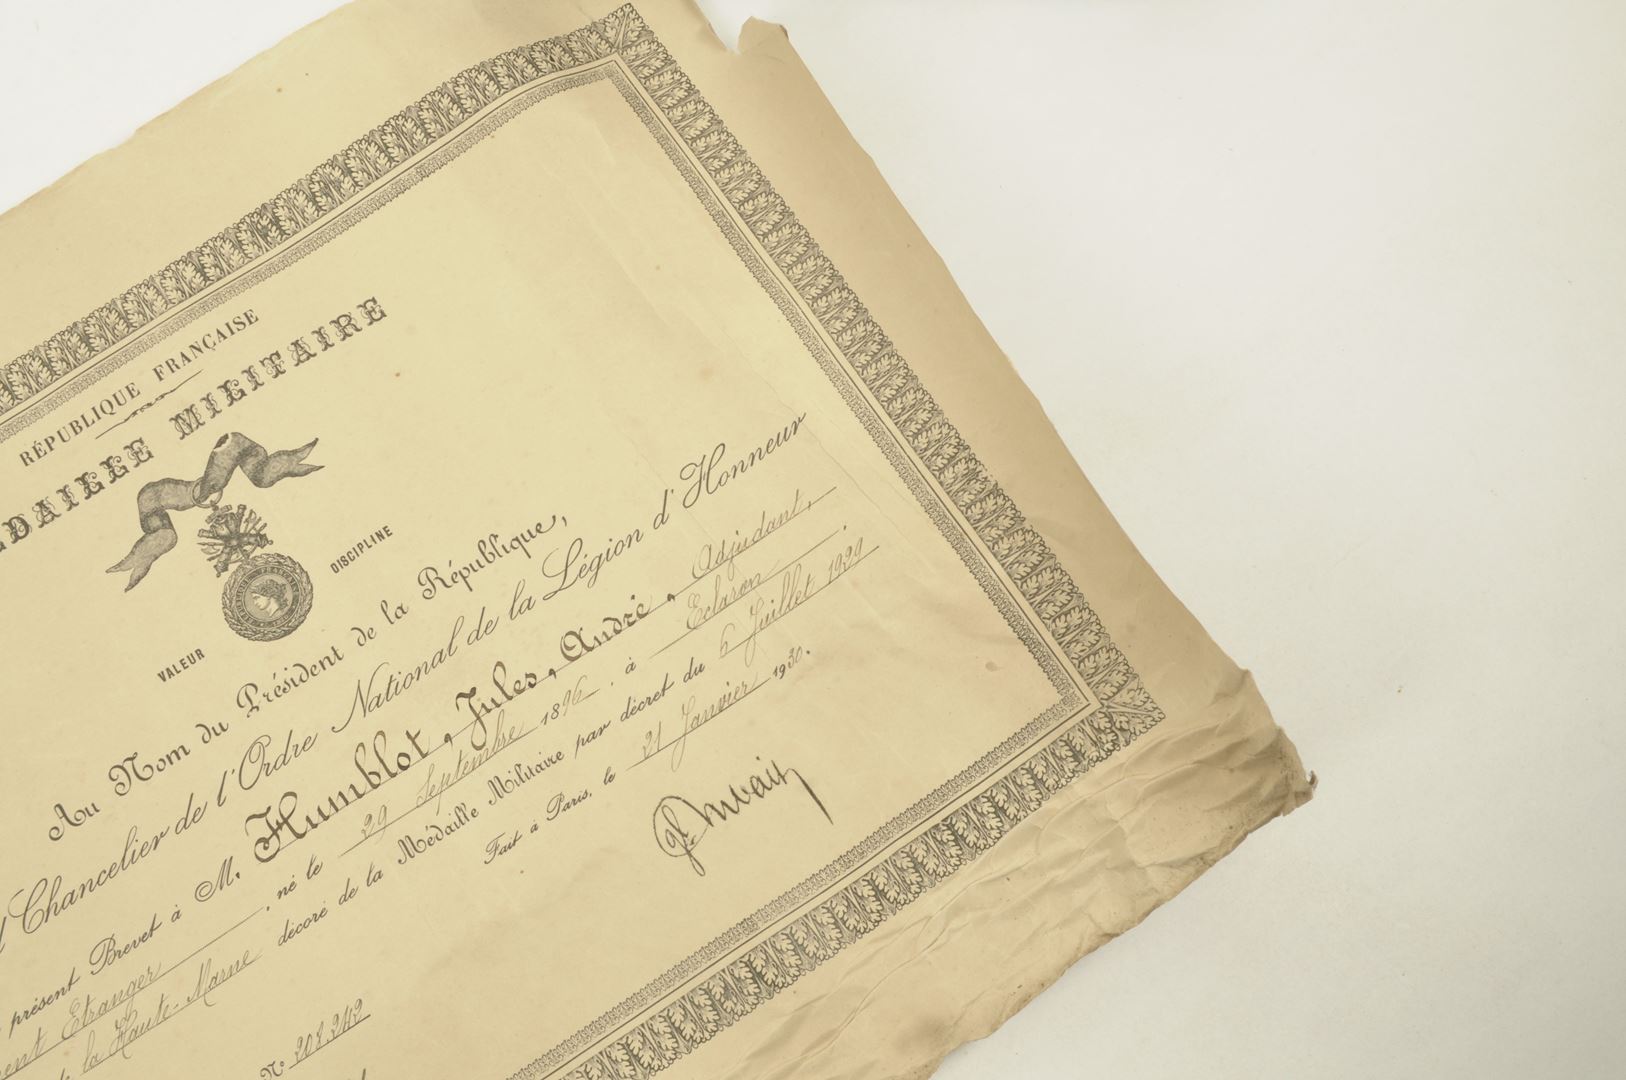 RÉPUBLIQUE FRANÇAISE
DAILLE MILITAIRE
VALEUR
DISCIPLINE
Au Nom du Président de la République,
d Chancelier de l'Ordre National de la Légion d'Honneur
présent Brevet à M. Humblot, Jules, André, Adjudant,
ent Etranger, né le 29 Septembre 1896, à Eclaron.
la Haute-Marne décoré de la Médaille Militaire par décret du 6 Juillet 1929
Fait à Paris, le 21 Janvier 1930.
N°